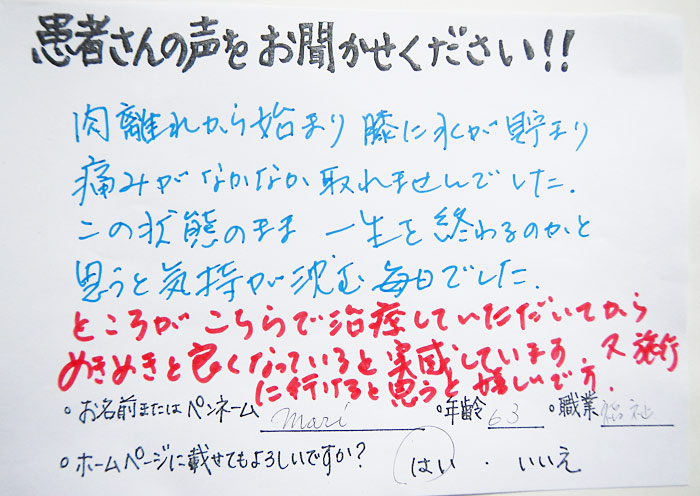 患者さんの声をお聞かせください!!
肉離れから始まり 膝に水が貯まり
痛みがなかなか取れませんでした.
この状態のまま 一生を終わるのかと
思うと気持が沈む毎日でした.
ところがこちらで治療していただいてから
めきめきと良くなっていると実感しています. 又 旅行
に行けると思うと嬉しいです.
○お名前またはペンネーム mari ○年齢 63 ○職業 福祉
○ホームページに載せてもよろしいですか? はい ・ いいえ